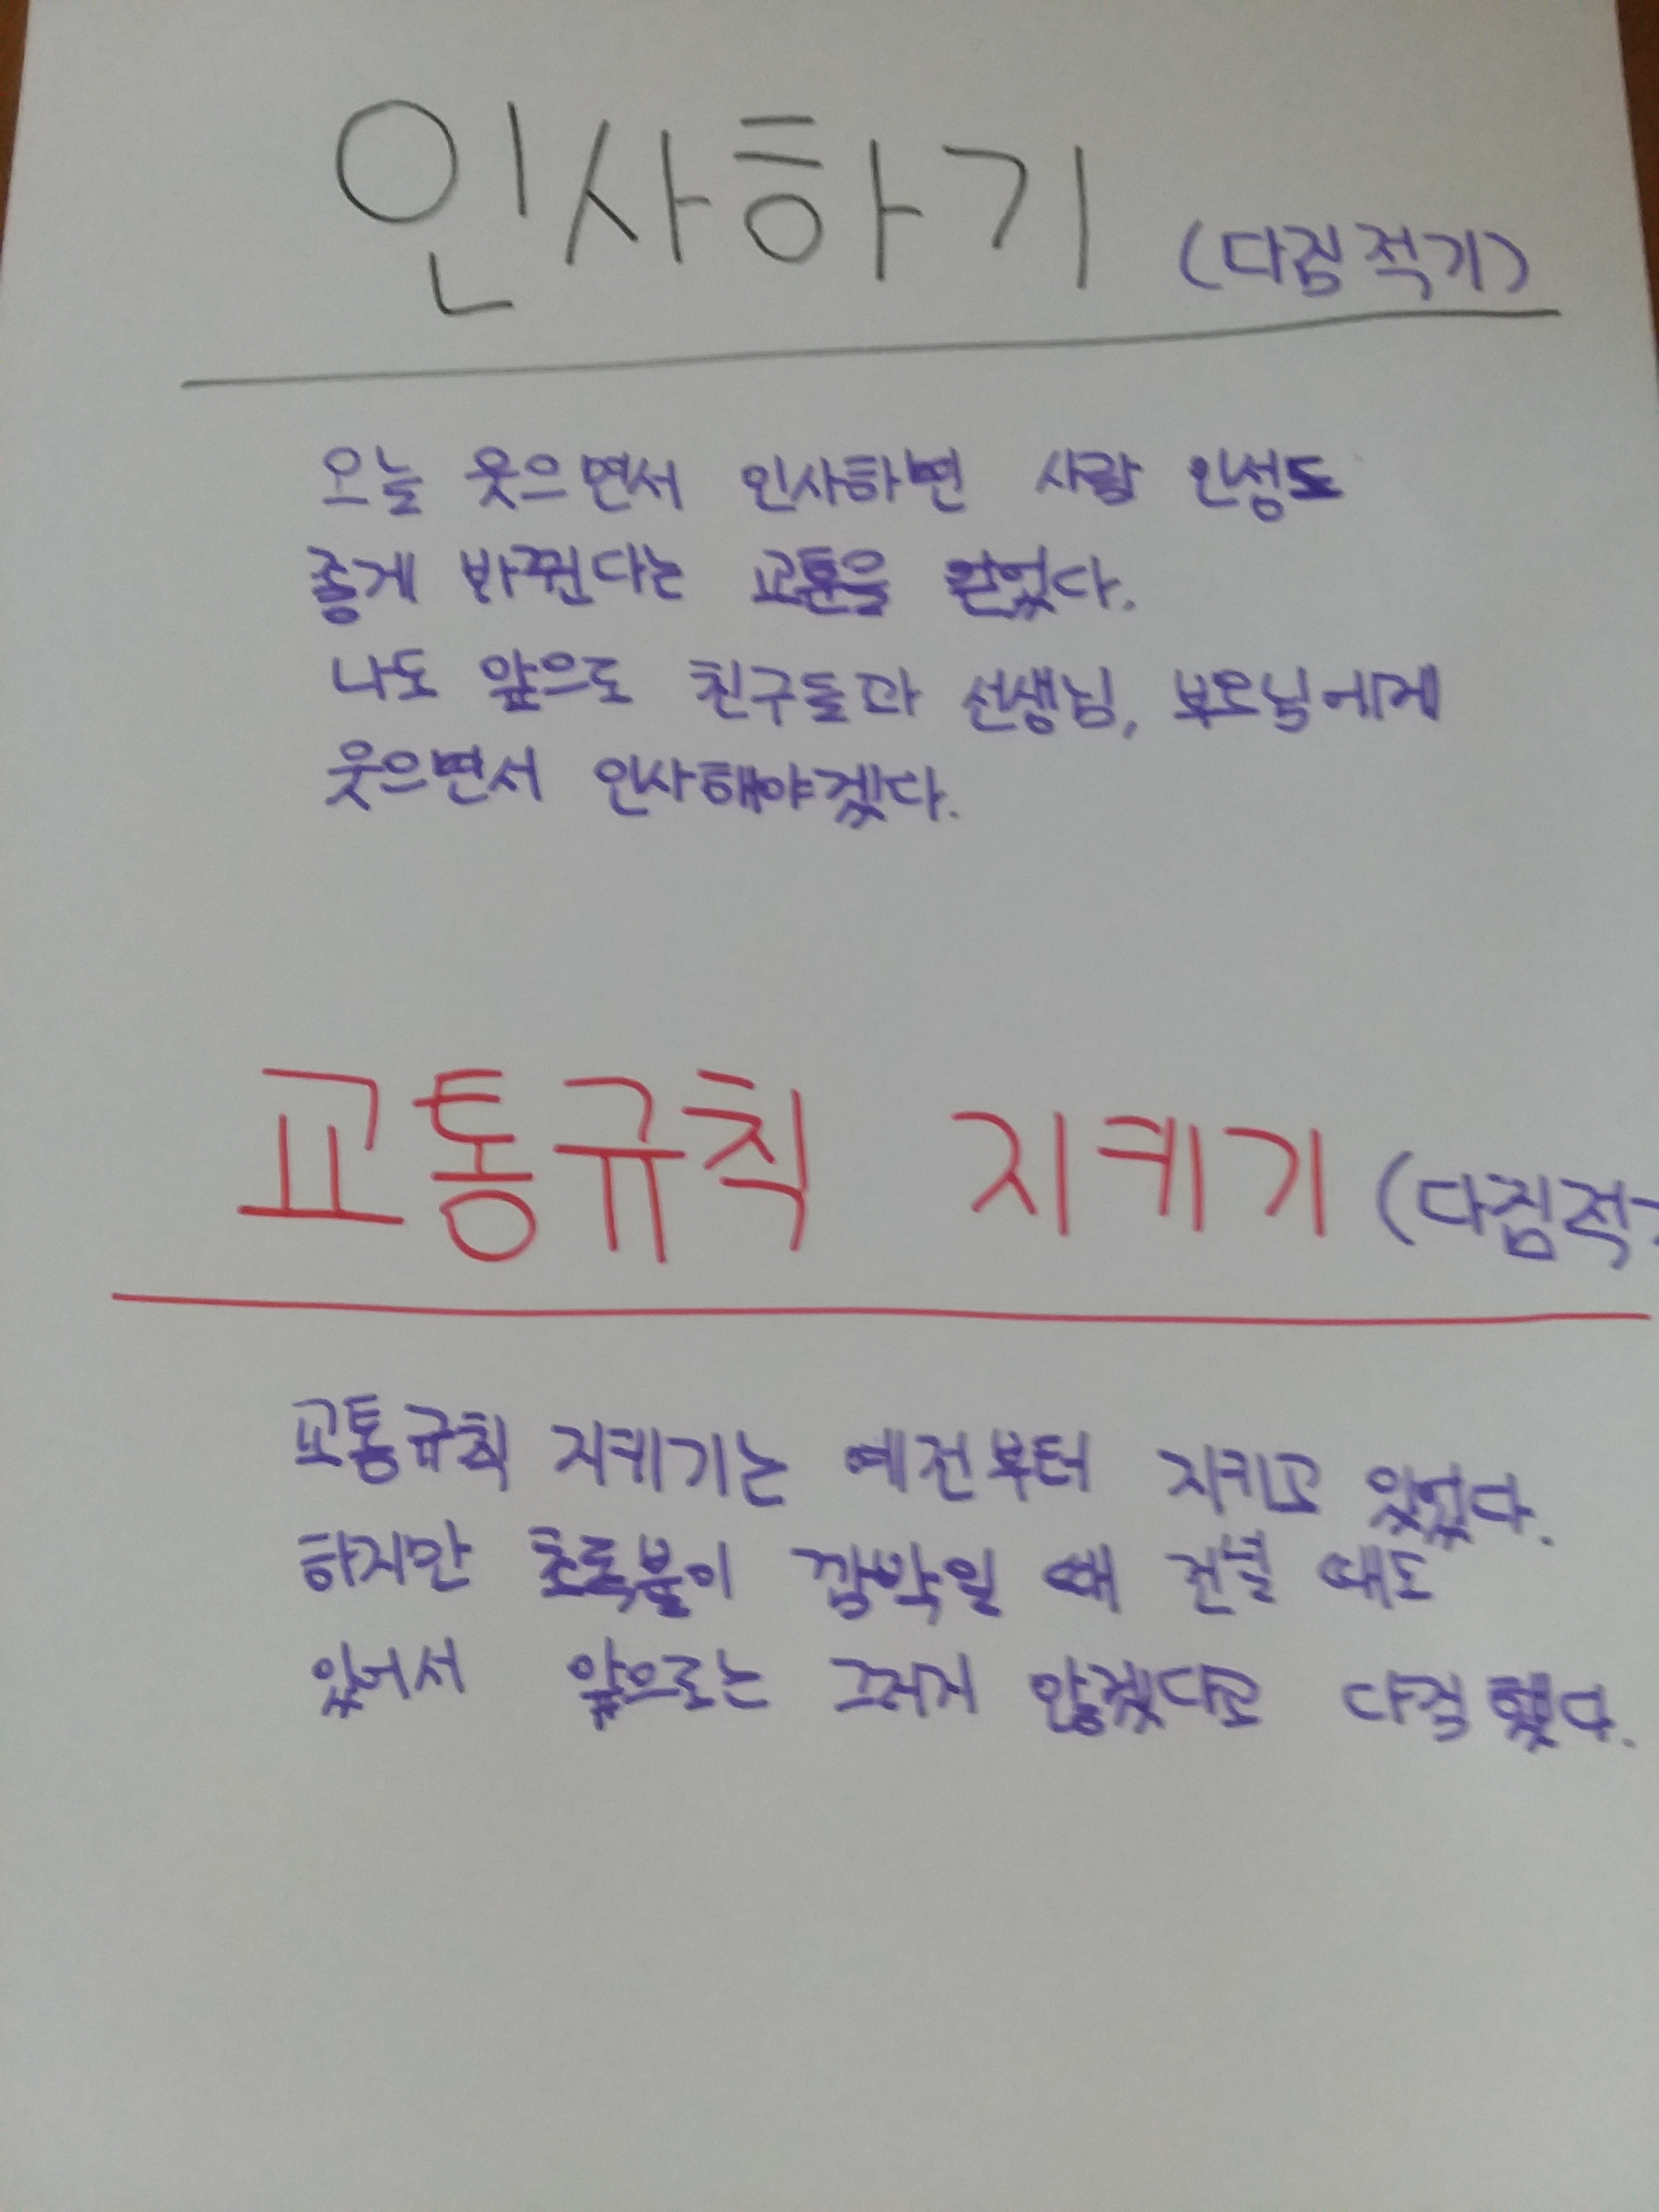 인사하기 (다짐 적기)
오늘 웃으면서 인사하면 사람 인성도
좋게 바뀐다는 교훈을 얻었다.
나도 앞으로 친구들과 선생님, 부모님에게
웃으면서 인사해야겠다.
교통규칙 지키기 (다짐적
교통규칙 지키기는 예전부터 지키고 있었다.
하지만 초록불이 깜박일 때 건널 때도
있어서 앞으로는 그러지 않겠다고 다짐했다.